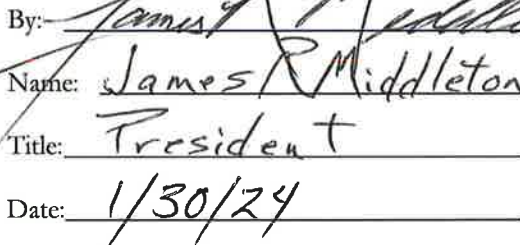 By: James R Middleton
Name: James R Middleton
Title: President
Date: 1/30/24